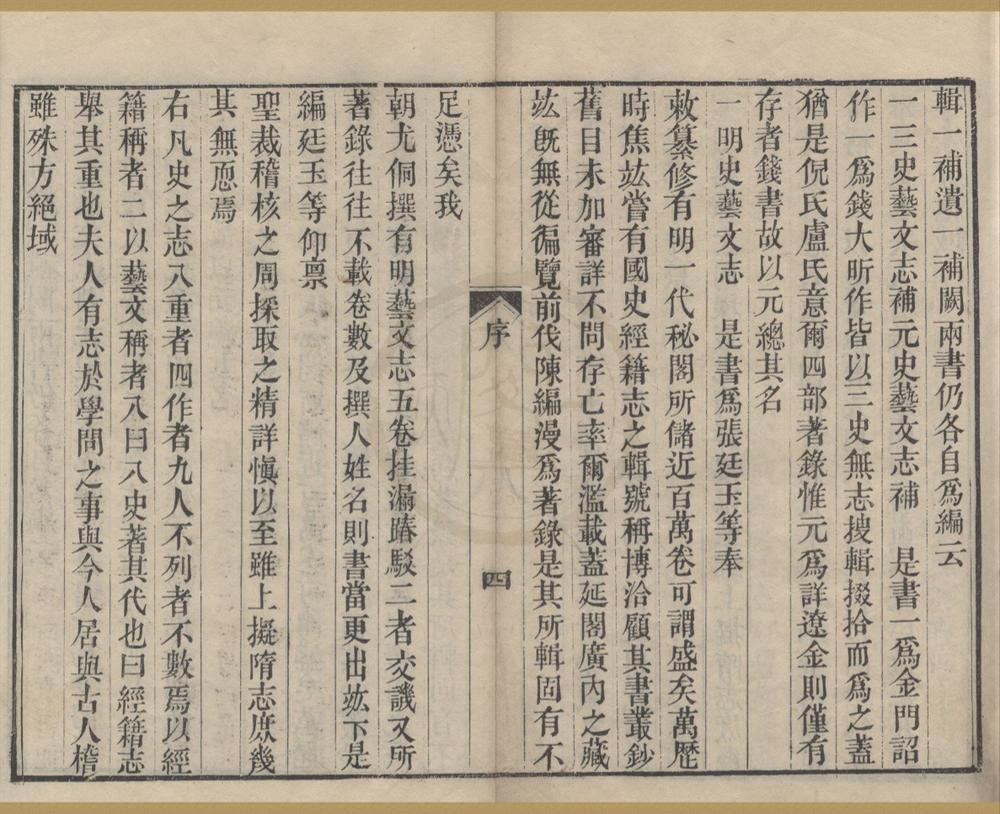 輯一補遺一補闕兩書仍各自爲編云
一三史藝文志補元史藝文志補　是書一爲金門詔
作一爲錢大昕作皆以三史無志搜輯掇拾而爲之蓋
猶是倪氏盧氏意爾四部著錄惟元爲詳遼金則僅有
存者錢書故以元總其名
一明史藝文志　是書爲張廷玉等奉
敕纂修有明一代秘閣所儲近百萬卷可謂盛矣萬歷
時焦竑嘗有國史經籍志之輯號稱博洽顧其書叢鈔
舊目未加審詳不問存亡率爾濫載蓋延閣廣內之藏
竑旣無從徧覽前代陳編漫爲著錄是其所輯固有不
序
四
足憑矣我
朝尤侗撰有明藝文志五卷挂漏踳駁二者交譏又所
著錄往往不載卷數及撰人姓名則書當更出竑下是
編廷玉等仰禀
聖裁稽核之周採取之精詳愼以至雖上擬隋志庶幾
其無恧焉
右凡史之志八重者四作者九人不列者不數焉以經
籍稱者二以藝文稱者八曰八史著其代也曰經籍志
舉其重也夫人有志於學問之事與今人居與古人稽
雖殊方絕域